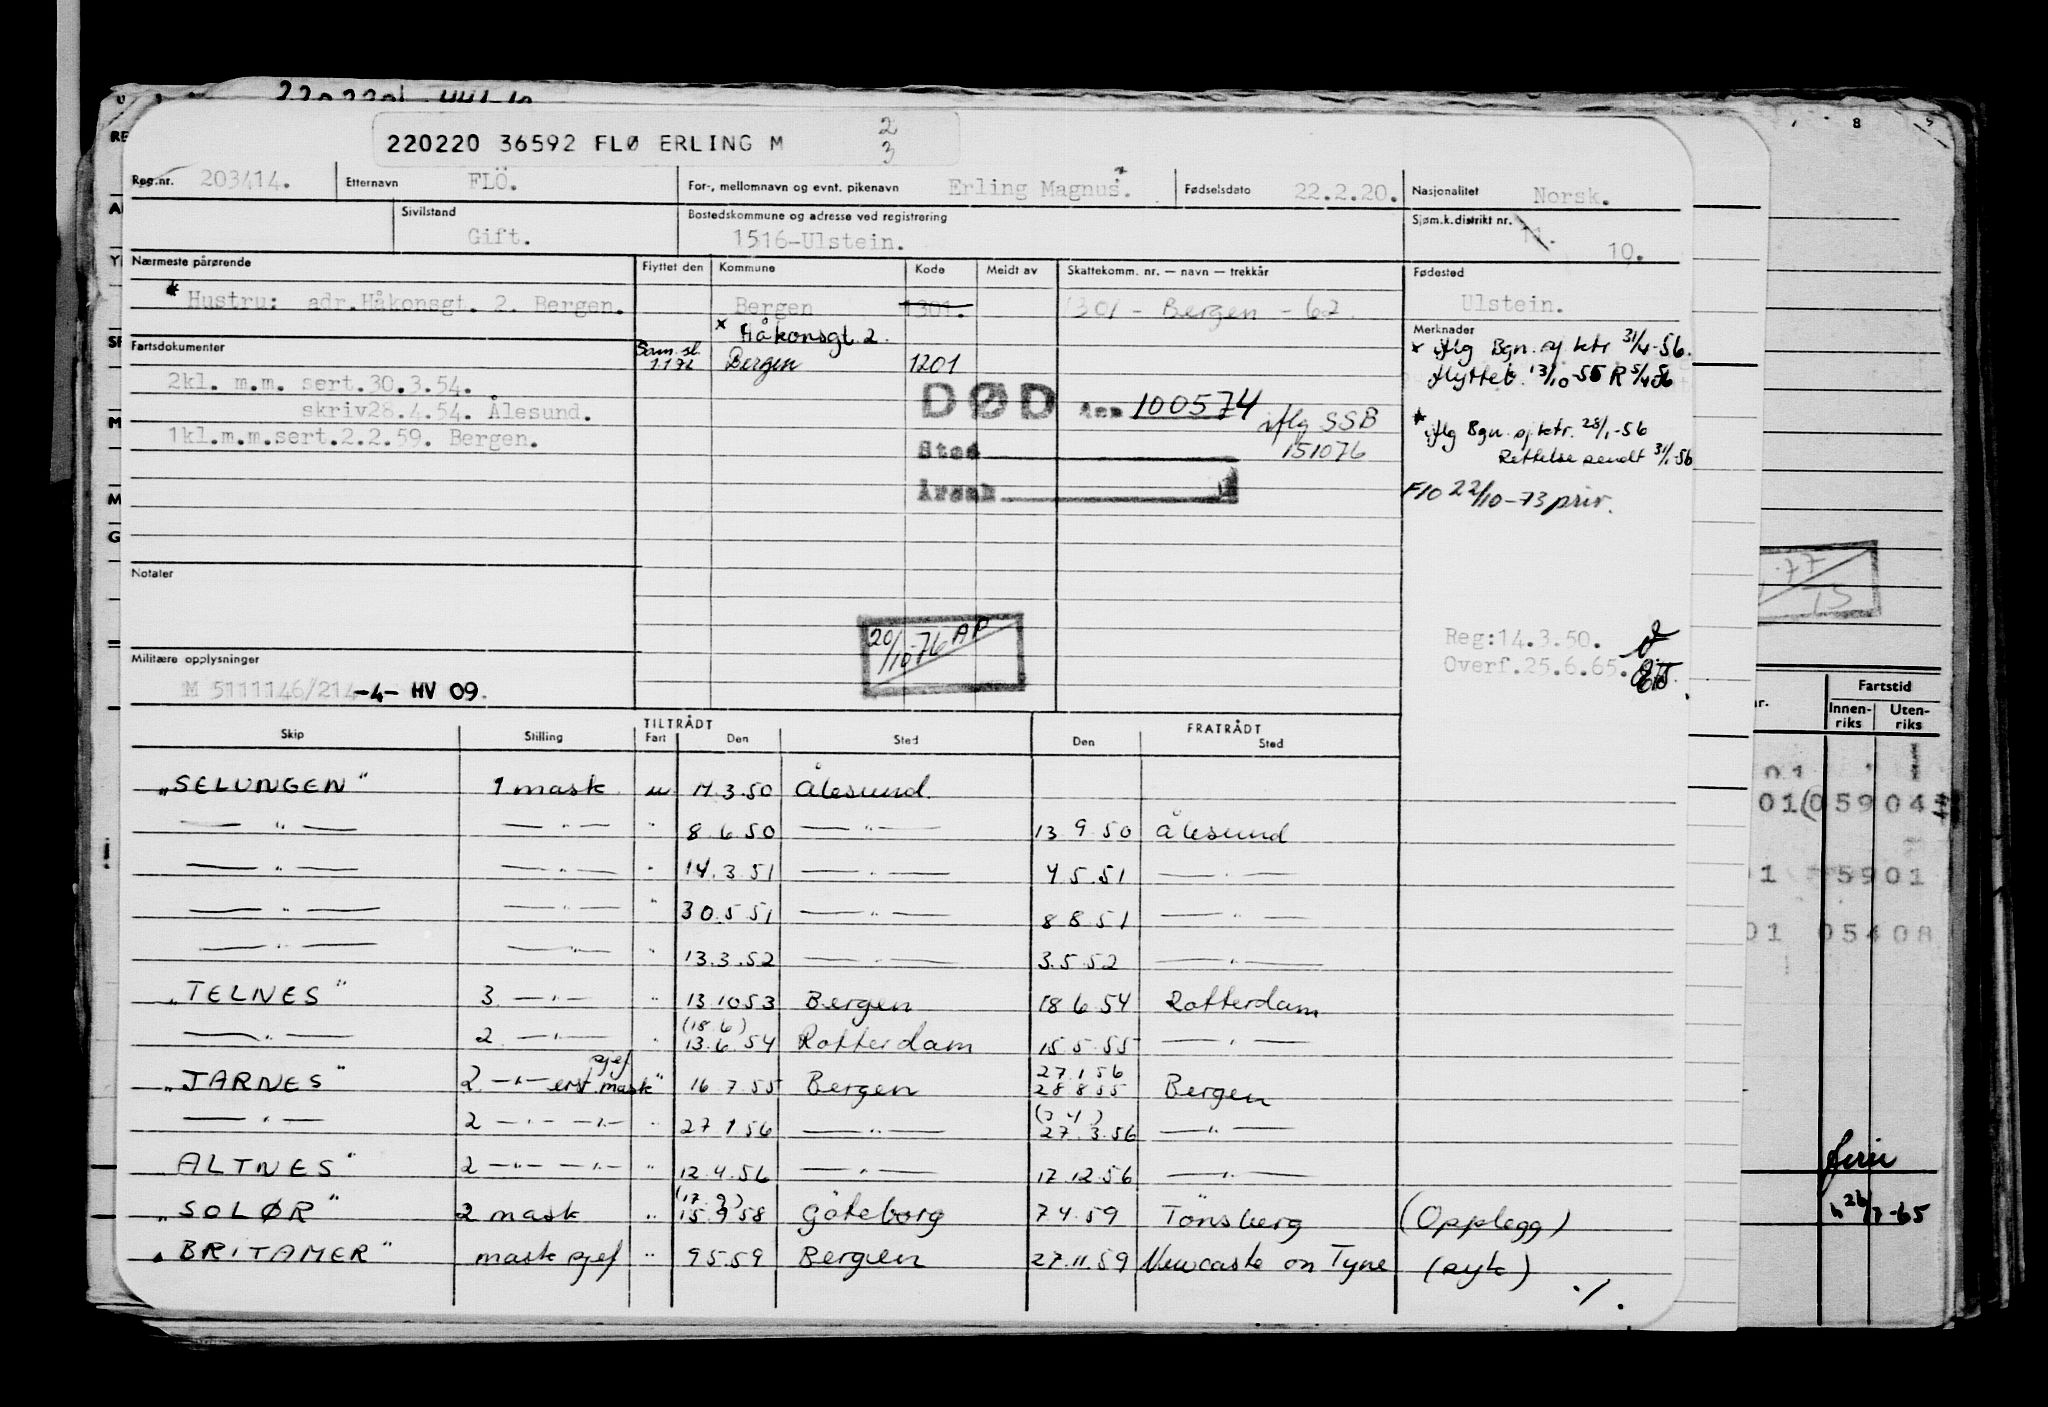 220220 36592 FLØ ERLING M 2/3
Reg.nr. 203414. Etternavn FLÖ. For-, mellomnavn og evnt. pikenavn Erling Magnus. Fødselsdato 22.2.20. Nasjonalitet Norsk.
Sivilstand Gift. Bostedskommune og adresse ved registrering 1516-Ulstein. Sjøm.k.distrikt nr. 11. 10.
Nærmeste pårørende Flyttet den Kommune Kode Meldt av Skattekomm. nr. — navn — trekkår Fødested
* Hustru: adr.Håkonsgt. 2. Bergen. Bergen 1301. 1301 - Bergen - 62. Ulstein.
x Håkonsgt. 2.
Merknader
* iflg Bgn. sj ktr 31/4-56.
flyttet 13/10-55 R 5/4-56
Fartsdokumenter Sam.sl. 1.1.72 Bergen 1201
2kl. m.m. sert.30.3.54.
skriv28.4.54. Ålesund.
1kl.m.m.sert.2.2.59. Bergen.
DØD den 100574 iflg SSB
Sted 151076
Årsak
* iflg Bgn. sj ktr. 28/1-56
Rettelse sendt 31/1-56
F10 22/10-73 priv.
Notater
20/10-76 AP
Reg:14.3.50.
Overf.25.6.65.
Militære opplysninger
M 5111146/214-4- HV 09.
TILTRÅDT FRATRÅDT
Skip Stilling Fart Den Sted Den Sted
"SELUNGEN" 1 mask u 14.3.50 Ålesund.
— " — — " — " 8.6.50 — " — 13.9.50 Ålesund
— " — — " — " 14.3.51 — " — 4.5.51 — " —
— " — — " — " 30.5.51 — " — 8.8.51 — " —
— " — — " — " 13.3.52 — " — 3.5.52 — " —
"TELNES" 3 — " — " 13.10.53 Bergen 18.6.54 Rotterdam
— " — 2 — " — " (18.6) 13.6.54 Rotterdam 15.5.55 — " —
"JARNES" 2 — " — erst. mask sjef " 16.7.55 Bergen 27.1.56 28.8.55 Bergen
— " — 2 — " — — " — " 27.1.56 — " — (3.4) 27.3.56 — " —
"ALTNES" 2 — " — — " — " 12.4.56 — " — 17.12.56 — " —
"SOLØR" 2 mask " (17.9) 15.9.58 Göteborg 7.4.59 Tønsberg (Opplegg)
"BRITAMER" mask sjef " 9.5.59 Bergen 27.11.59 Newcastle on Tyne (syk)
./.
8
Fartstid
Innen-riks Uten-riks
01
01(05904
5901
01 05408
ferie